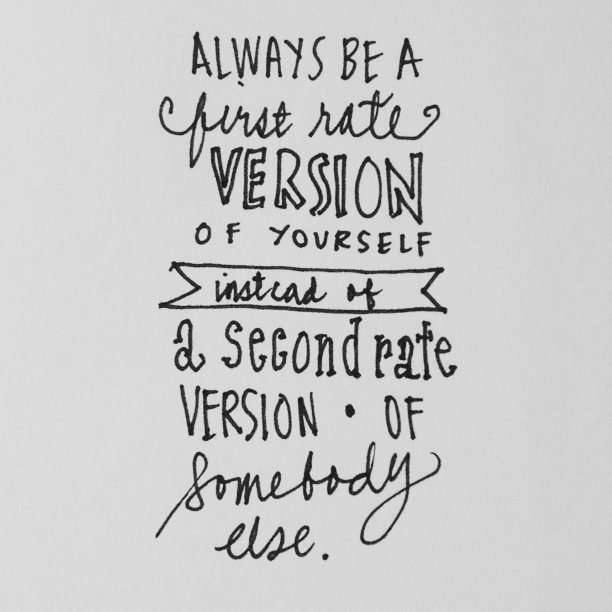 ALWAYS BE A
first rate
VERSION
OF YOURSELF
instead of
a second rate
VERSION • OF
somebody
else.